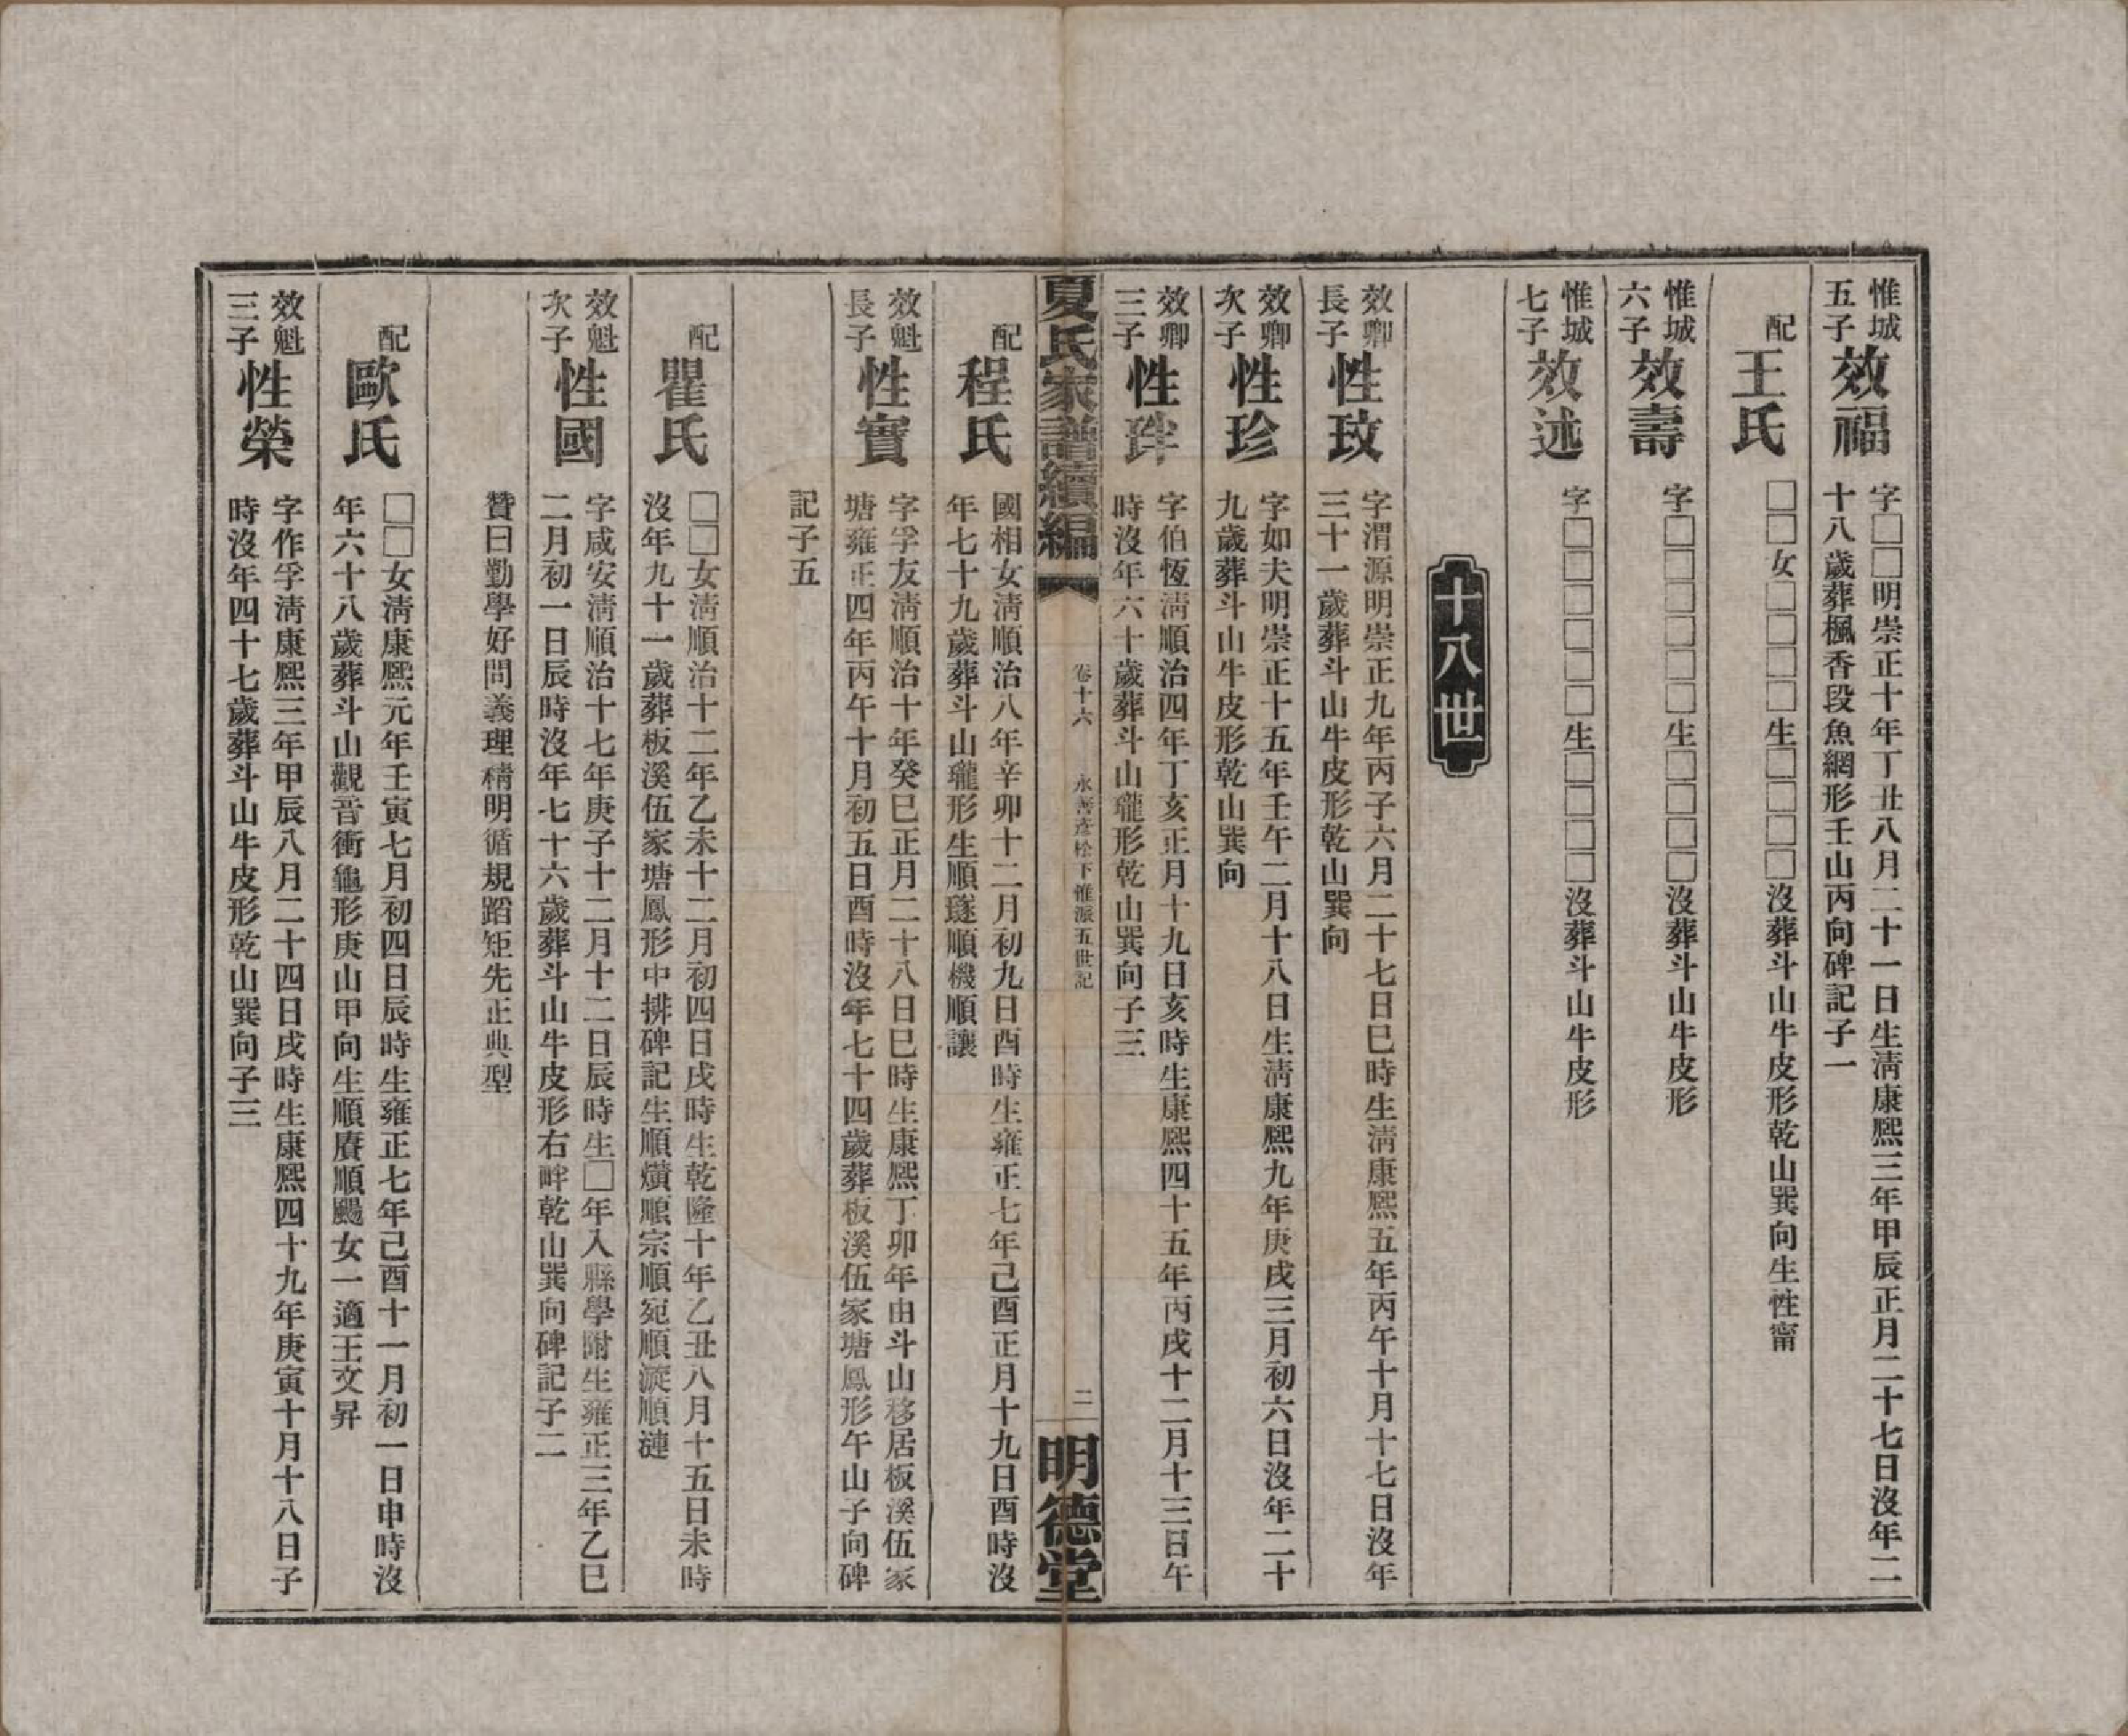 惟城五子
效福
字□□明崇正十年丁丑八月二十一日生淸康熙三年甲辰正月二十七日沒年二
十八歲葬楓香段魚網形壬山丙向碑記子一
配
王氏
□□女□□□□生□□□□沒葬斗山牛皮形乾山巽向生性甯
惟城六子
效壽
字□□□□□□生□□□□沒葬斗山牛皮形
惟城七子
效述
字□□□□□□生□□□□沒葬斗山牛皮形
十八世
效卿長子
性玟
字渭源明崇正九年丙子六月二十七日巳時生淸康熙五年丙午十月十七日沒年
三十一歲葬斗山牛皮形乾山巽向
效卿次子
性珍
字如夫明崇正十五年壬午二月十八日生淸康熙九年庚戌三月初六日沒年二十
九歲葬斗山牛皮形乾山巽向
效卿三子
性珜
字伯恆淸順治四年丁亥正月十九日亥時生康熙四十五年丙戌十二月十三日午
時沒年六十歲葬斗山瓏形乾山巽向子三
夏氏家譜續編
卷十六
永善彥松下惟派五世記
二
明德堂
配
程氏
國相女淸順治八年辛卯十二月初九日酉時生雍正七年己酉正月十九日酉時沒
年七十九歲葬斗山瓏形生順璲順機順讓
效魁長子
性實
字孚友淸順治十年癸巳正月二十八日巳時生康熙丁卯年由斗山移居板溪伍家
塘雍正四年丙午十月初五日酉時沒年七十四歲葬板溪伍家塘鳳形午山子向碑
記子五
配
瞿氏
□□女淸順治十二年乙未十二月初四日戌時生乾隆十年乙丑八月十五日未時
沒年九十一歲葬板溪伍家塘鳳形中排碑記生順爌順宗順宛順漇順漣
效魁次子
性國
字咸安淸順治十七年庚子十二月十二日辰時生□年入縣學附生雍正三年乙巳
二月初一日辰時沒年七十六歲葬斗山牛皮形右畔乾山巽向碑記子二
贊曰勤學好問義理精明循規蹈矩先正典型
配
歐氏
□□女淸康熙元年壬寅七月初四日辰時生雍正七年己酉十一月初一日申時沒
年六十八歲葬斗山觀音衝龜形庚山甲向生順賡順颺女一適王文昇
效魁三子
性榮
字作孚淸康熙三年甲辰八月二十四日戌時生康熙四十九年庚寅十月十八日子
時沒年四十七歲葬斗山牛皮形乾山巽向子三